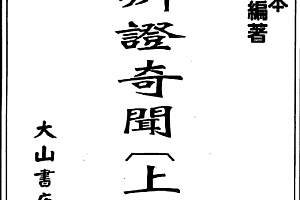 本
編著
證奇聞〔上
大山書店